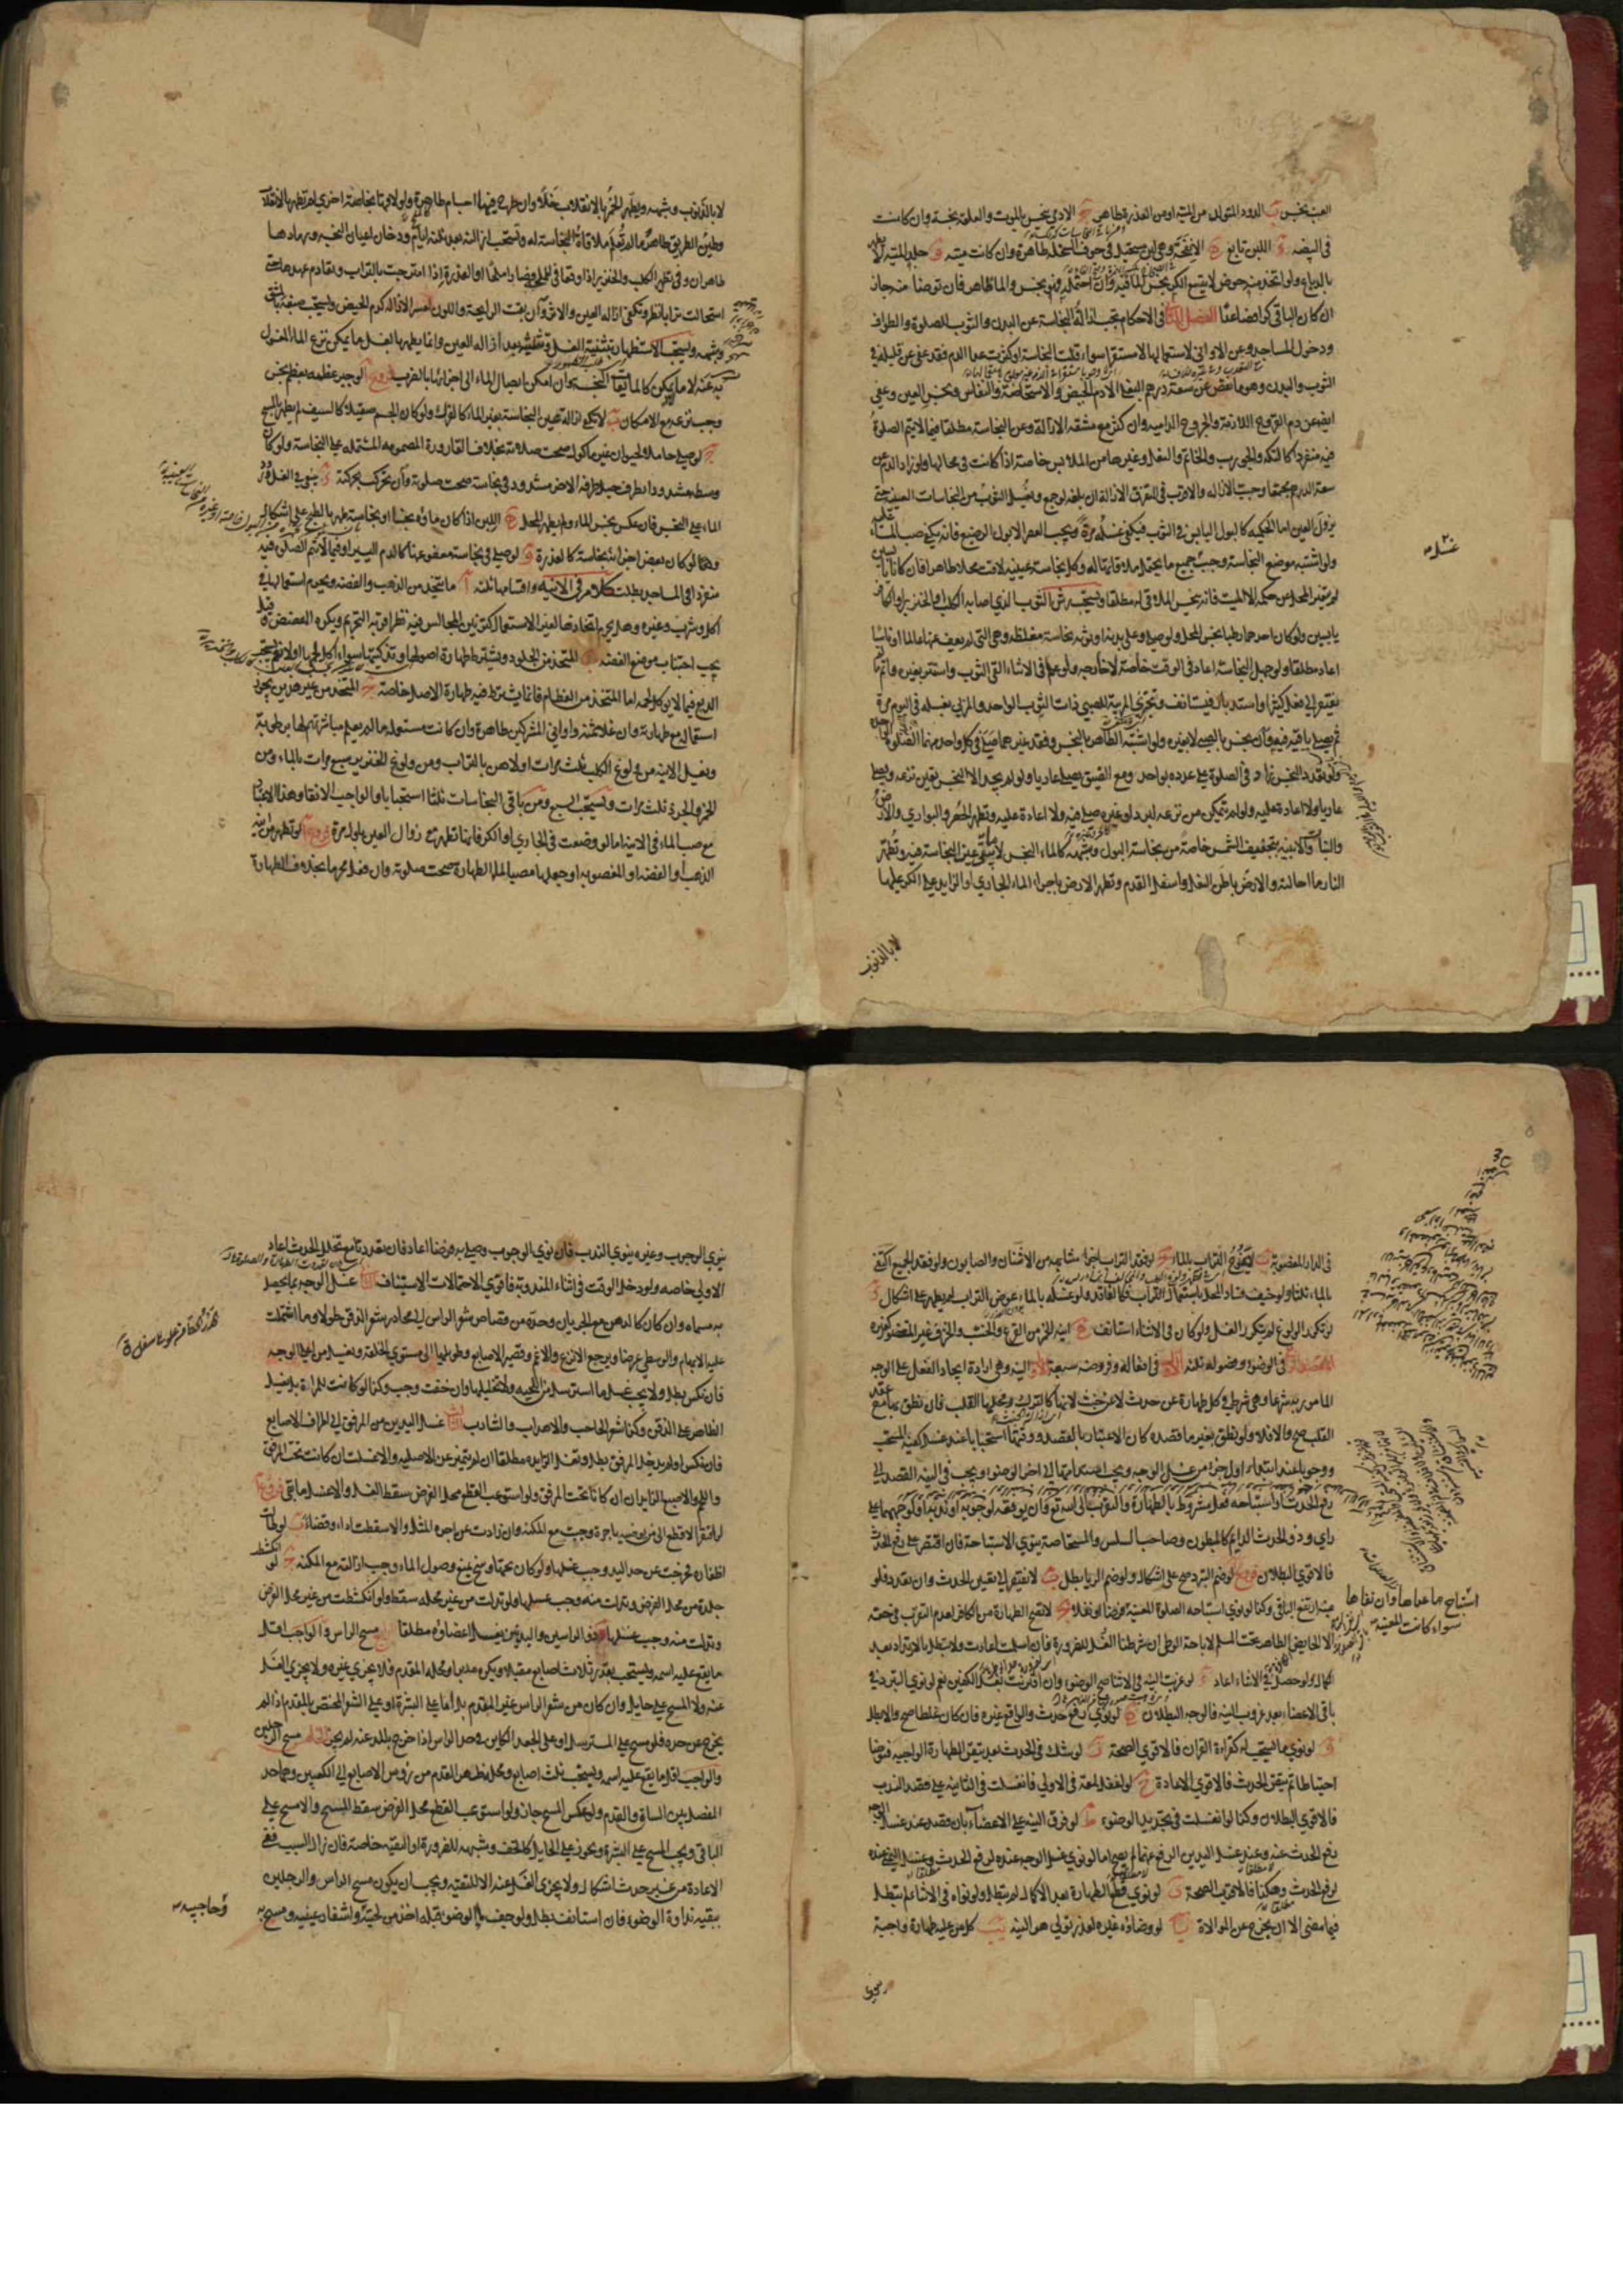 العين نجس ب الدود المتولد من الميتة او من العذرة طاهر ج الادمي ينجس بالموت والعلقة نجسة وان كانت
في البيضة د اللبن تابع ه الانفحة وهي لبن مستحيل في جوف السخلة طاهرة وان كانت ميتة و جلد الميتة لا يطهر
بالدباغ ولو اتخذ منه حوض لا يتسع الكر نجس الماء فيه وان احتمله فهو نجس والماء طاهر فان توضأ منه جاز
ان كان الباقي كرا فصاعدا الفصل الثاني في الاحكام يجب ازالة النجاسة عن البدن والثوب للصلوة والطواف
ودخول المساجد وعن الاواني لاستعمالها لا مستقرا سواء قلت النجاسة او كثرت عدا الدم فقد عفي عن قليله في
الثوب والبدن وهو ما نقص عن سعة درهم البغلي الا دم الحيض والاستحاضة والنفاس ونجس العين وعفي
ايضا عن دم القروح اللازمة والجروح الدامية وان كثر مع مشقة الازالة وعن النجاسة مطلقا فيما لا يتم الصلوة
فيه منفردا كالتكة والجورب والخاتم والنعل وغيرها من الملابس خاصة اذا كانت في محالها ولو زاد الدم عن
سعة الدرهم مجتمعا وجبت ازالته والاقرب في المتفرق الازالة ان بلغه لو جمع ويغسل الثوب من النجاسات العينية حتى
يزول العين اما الحكمية كالبول اليابس في الثوب فيكفي غسله مرة ويجب العصر الا بول الرضيع فانه يكفي صب الماء عليه
ولو اشتبه موضع النجاسة وجب غسل جميع ما يحتمل ملاقاتها له وكل نجاسة عينية لاقت محلا طاهرا فان كانا يابسين
لم يتغير المحل عن حكمه الا الميت فانه ينجس الملاقي له مطلقا ويستحب رش الثوب الذي اصابه الكلب او الخنزير او الكافر
يابسين ولو كان احدهما رطبا نجس المحل ولو صلى وعلى بدنه او ثوبه نجاسة مغلظة وهي التي لم يعف عنها عالما او ناسيا
اعاد مطلقا ولو جهل النجاسة اعاد في الوقت خاصة لا خارجه ولو علم في الاثناء القى الثوب واستتر بغيره واتم ما لم
يفتقر الى فعل كثير او استدبار فيستأنف وتجتزئ المربية للصبي ذات الثوب الواحد والمربي بغسله في اليوم مرة
ثم يصلي باقيه فيه وان نجس بالصبي لا بغيره ولو اشتبه الطاهر بالنجس وفقد غيرهما صلى في كل واحد منهما الصلوة الواحدة
ولو تعدد النجس زاد في الصلوة على عدده بواحد ومع الضيق يصلي عاريا ولو لم يجد الا النجس تعين نزعه ويصلي
عاريا ولا اعادة عليه ولو لم يتمكن من نزعه لبرد او غيره صلى فيه ولا اعادة عليه وتطهر الحصر والبواري والارض
والنبات والابنية بتجفيف الشمس خاصة من نجاسة البول وشبهه كالماء النجس لا ما يبقى عين النجاسة فيه وتطهر
النار ما احالته والارض باطن النعل واسفل القدم وتطهر الارض باجراء الماء الجاري او الزائد على الكر عليها
لا بالذنوب
لا بالذنوب وشبهه ويطهر الخمر بالانقلاب خلا وان طرح فيها اجسام طاهرة ولو لاقتها نجاسة اخرى لم تطهر بالانقلاب
وطين الطريق طاهر ما لم تعلم ملاقاة النجاسة له وتستحب ازالته بعد ثلثة ايام ودخان اعيان النجسة ورمادها
طاهران وفي تطهير الكلب والخنزير اذا وقعا في المملحة فصارا ملحا او العذرة اذا امتزجت بالتراب وتقادم عهدها حتى
استحالت ترابا نظر وتكفي ازالة العين والاثر وان بقيت الرائحة واللون لعسر الازالة كدم الحيض ويستحب صبغه بالمشق
وشبهه ويستحب الاستظهار بتثنية الغسل وتثليثه بعد ازالة العين وانما يطهر بالغسل ما يمكن نزع الماء المغسول
به عنه لا ما لا يمكن كالمائعات النجسة وان امكن ايصال الماء الى اجزائها بالضرب فروع ا لو جبر عظمه بعظم نجس
وجب نزعه مع الامكان ب لا يكفي ازالة عين النجاسة بغير الماء كالفرك ولو كان الجسم صقيلا كالسيف لم يطهر بالمسح
ج لو صلى حاملا لحيوان غير مأكول صحت صلاته بخلاف القارورة المضمومة المشتملة على النجاسة ولو كان
وسطه مشدودا بطرف حبل طرفه الاخر مشدود في نجاسة صحت صلوته وان تحركت بحركته د ينبغي في الغسل ورود
الماء على النجس فان عكس نجس الماء ولم يطهر المحل ه اللبن اذا كان ماؤه نجسا او نجاسة طهر بالطبخ على اشكال
وكذا لو كان بعض اجزائه نجاسة كالعذرة و لو صلى في نجاسة معفو عنها كالدم اليسير او فيما لا تتم الصلوة فيه
منفردا في المساجد بطلت كلام في الانية واقسامها ثلثة ا ما يتخذ من الذهب والفضة ويحرم استعمالها في
اكل وشرب وغيره وهل يحرم اتخاذها لغير الاستعمال كتزيين المجالس فيه نظر اقربه التحريم ويكره المفضض وقيل
يجب اجتناب موضع الفضة ب المتخذ من الجلود ويشترط طهارة اصولها وتذكيتها سواء اكل لحمها اولا نعم يستحب
الدبغ فيما لا يؤكل لحمه اما المتخذ من العظام فانما يشترط فيه طهارة الاصل خاصة ج المتخذ من غير هذين يجوز
استعماله مع طهارته وان غلا ثمنه واواني المشركين طاهرة وان كانت مستعملة ما لم يعلم مباشرتهم لها برطوبة
وتغسل الانية من ولوغ الكلب ثلث مرات اولاهن بالتراب ومن ولوغ الخنزير سبع مرات بالماء ومن
الخمر والجرذ ثلث مرات ويستحب السبع ومن باقي النجاسات ثلثا استحبابا والواجب الانقاء وهذا الاعتبار
مع صب الماء في الانية اما لو وضعت في الجاري او الكر فانها تطهر مع زوال العين باول مرة فروع ا لو تطهر من انية
الذهب او الفضة او المغصوبة او جعلها مصبا لماء الطهارة صحت طهارته وان فعل محرما بخلاف الطهارة
في الدار المغصوبة ب لا يمزج التراب بالماء ج لو فقد التراب اجزأ مشابهه من الاشنان والصابون ولو فقد الجميع اكتفى
بالماء ثلثا ولو خيف فساد المحل باستعمال التراب فكالفاقد ولو غسله بالماء عوض التراب لم يطهر على اشكال د
لو تكرر الولوغ لم يتكرر الغسل ولو كان في الاثناء استأنف ه انية الخمر من القرع والخشب والخزف غير المغضور كغيره
المقصد الرابع في الوضوء وفصوله ثلثة الاول في افعاله وفروضه سبعة الاول النية وهي ارادة ايجاد الفعل على الوجه
المأمور به شرعا وهي شرط في كل طهارة عن حدث لا عن خبث لانها كالترك ومحلها القلب فان نطق بها مع عقد
القلب صح والا فلا ولو نطق بغير ما قصده كان الاعتبار بالقصد ووقتها استحبابا عند غسل كفيه المستحب
ووجوبا عند ابتداء اول جزء من غسل الوجه ويجب استدامتها حكما الى اخر الوضوء ويجب في النية القصد الى
رفع الحدث او استباحة فعل مشروط بالطهارة والتقرب الى الله تع وان يوقعه لوجوبه او ندبه او لوجههما على
راي وذو الحدث الدائم كالمبطون وصاحب السلس والمستحاضة ينوي الاستباحة فان اقتصر على رفع الحدث
فالاقوى البطلان فروع ا لو ضم التبرد صح على اشكال ولو ضم الريا بطل ب لا يفتقر الى تعيين الحدث وان تعدد فلو
عينه ارتفع الباقي وكذا لو نوى استباحة الصلوة المعينة فرضا او نفلا ج لا تصح الطهارة من الكافر لعدم التقرب في حقه
الا الحائض الطاهر تحت المسلم لاباحة الوطي ان شرطنا الغسل للضرورة فان اسلمت اعادت ولا تبطل بالارتداد بعد
الكمال ولو حصل في الاثناء اعاد د لو عزبت النية في الاثناء صح الوضوء وان اقترنت بغسل الكفين نعم لو نوى التبرد في
باقي الاعضاء بعد عزوب النية فالوجه البطلان ه لو نوى رفع حدث والواقع غيره فان كان غلطا صح والا بطل
و لو نوى ما يستحب له كقراءة القران فالاقوى الصحة ز لو شك في الحدث بعد تيقن الطهارة الواجبة فتوضأ
احتياطا ثم تيقن الحدث فالاقوى الاعادة ح لو اغفل لمعة في الاولى فانغسلت في الثانية على قصد الندب
فالاقوى البطلان وكذا لو انغسلت في تجديد الوضوء ط لو فرق النية على الاعضاء بان قصد عند غسل الوجه
رفع الحدث عنه وعند غسل اليدين الرفع عنهما لم يصح اما لو نوى غسل الوجه عنده لرفع الحدث وغسل اليمنى عنده
لرفع الحدث وهكذا فالاقرب الصحة ي لو نوى قطع الطهارة بعد الاكمال لم تبطل ولو نواه في الاثناء لم تبطل
فيما مضى الا ان يخرج عن الموالاة يا لو وضأه غيره لعذر تولى هو النية يب كل من عليه طهارة واجبة
ينوي
ينوي الوجوب وغيره ينوي الندب فان نوى الوجوب وصلى به فرضا اعاد فان تعددتا مع تخلل الحدث اعاد
الاولى خاصة ولو دخل الوقت في اثناء المندوبة فاقوى الاحتمالات الاستيناف الثاني غسل الوجه بما يحصل
به مسماه وان كان كالدهن مع الجريان وحده من قصاص شعر الراس الى محادر شعر الذقن طولا وما اشتملت
عليه الابهام والوسطى عرضا ويرجع الانزع والاغم وقصير الاصابع وطويلها الى مستوي الخلقة ويغسل من اعلى الوجه
فان نكس بطل ولا يجب غسل ما استرسل من اللحية ولا تخليلها وان خفت وجب وكذا لو كانت للمراة بل يغسل
الظاهر على الذقن وكذا شعر الحاجب والاهداب والشارب الثالث غسل اليدين من المرفق الى اطراف الاصابع
فان نكس او لم يدخل المرفق بطل وتغسل الزائدة مطلقا ان لم تتميز عن الاصلية والا غسلت ان كانت تحت المرفق
واللحم والاصبع الزائدان ان كانا تحت المرفق ولو استوعب القطع محل الفرض سقط الغسل والا غسل ما بقي فروع ا
لو افتقر الاقطع الى من يوضيه باجرة وجبت مع المكنة وان زادت عن اجرة المثل والا سقطت اداء وقضاء ب لو طالت
اظفاره فخرجت عن حد اليد وجب غسلها ولو كان تحتها وسخ يمنع وصول الماء وجب ازالته مع المكنة ج لو انكشط
جلدة من محل الفرض وتدلت منه وجب غسلها ولو تدلت من غير محله سقط ولو انكشطت من غير محل الفرض
وتدلت منه وجب غسلها د ذو الراسين والبدنين يغسل اعضاؤه مطلقا الرابع مسح الراس والواجب اقل
ما يقع عليه اسمه ويستحب بقدر ثلاث اصابع مقبلا ويكره مدبرا ومحله المقدم فلا يجزي غيره ولا يجزي الغسل
عنه ولا المسح على حايل وان كان من شعر الراس غير المقدم بل اما على البشرة او على الشعر المختص بالمقدم اذا لم
يخرج عن حده فلو مسح على المسترسل او على الجعد الكاين في حد الراس اذا خرج بالمد عنه لم يجز الخامس مسح الرجلين
والواجب اقل ما يقع عليه اسمه ويستحب بثلث اصابع ومحله ظهر القدم من رؤس الاصابع الى الكعبين وهما حد
المفصل بين الساق والقدم ولو عكس المسح جاز ولو استوعب القطع محل الفرض سقط المسح والا مسح على
الباقي ويجب المسح على البشرة ويجوز على الحايل كالخف وشبهه للضرورة او التقية خاصة فان زال السبب ففي
الاعادة من غير حدث اشكال ولا يجزي الغسل عنه الا للتقية ويجب ان يكون مسح الراس والرجلين
ببقية نداوة الوضوء فان استأنف بطل ولو جف ماء الوضوء قبله اخذ من لحيته واشفار عينيه ومسح به
وحاجبيه